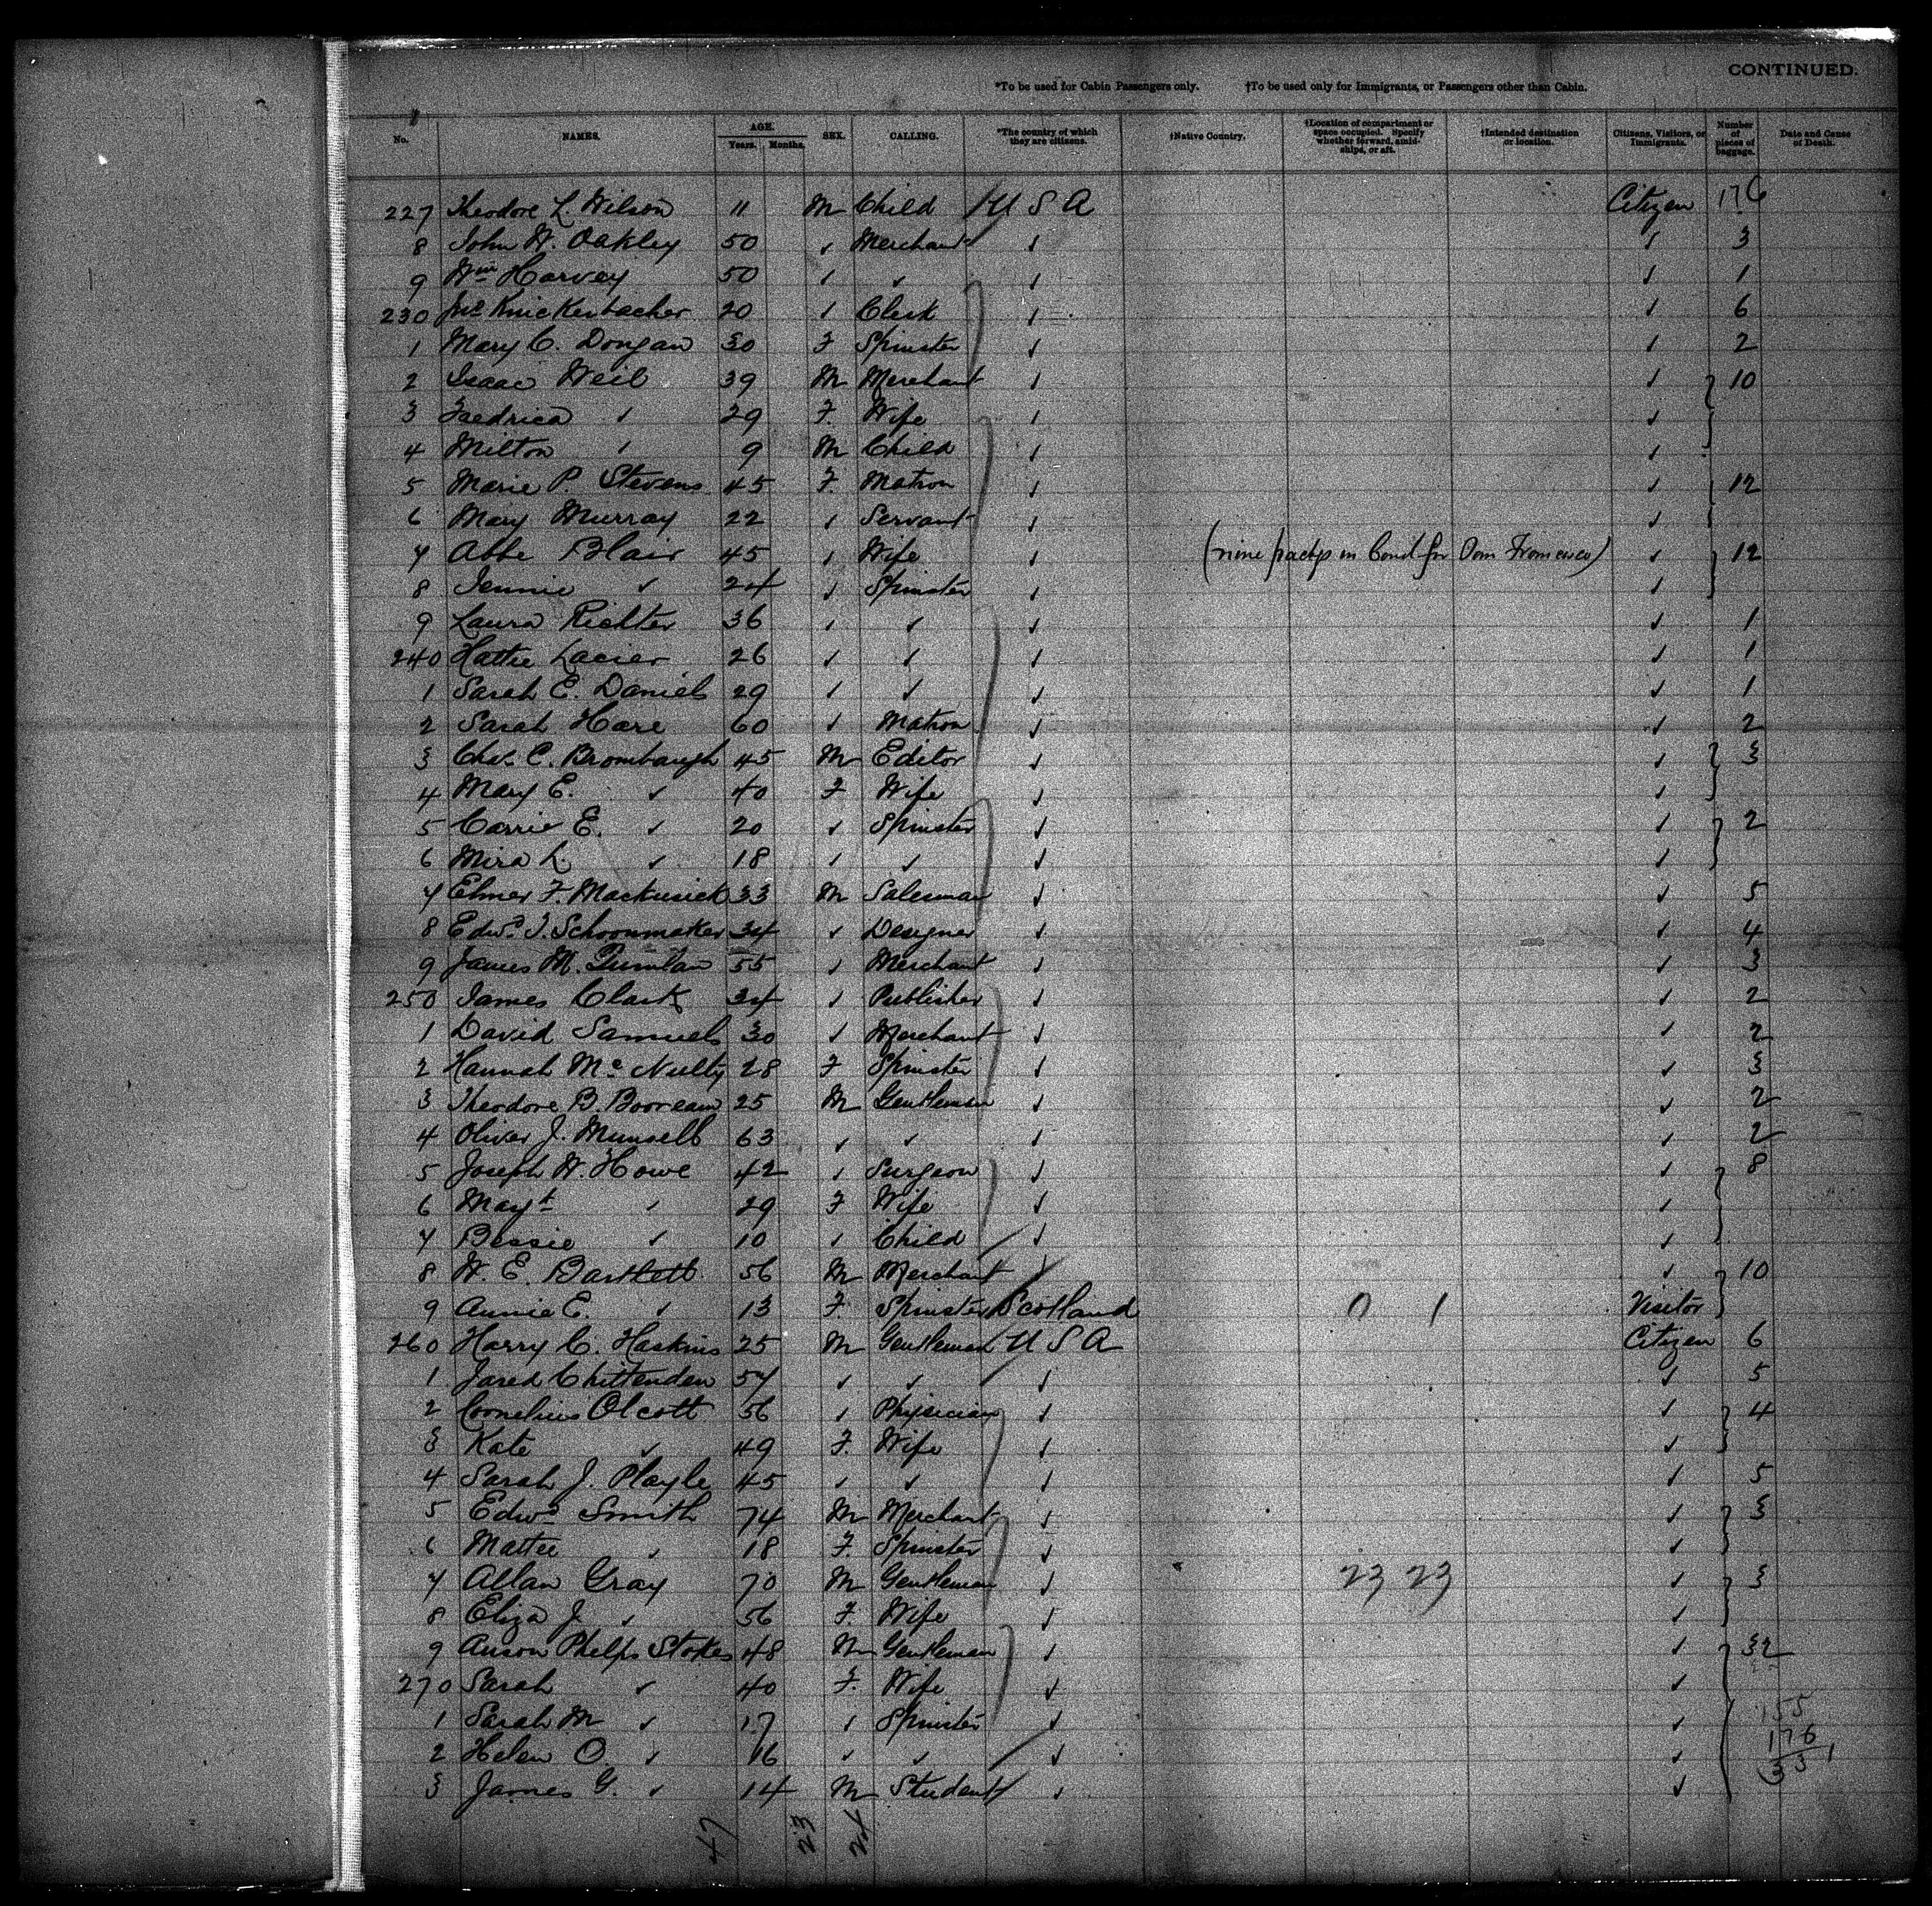 CONTINUED.
*To be used for Cabin Passengers only. †To be used only for Immigrants, or Passengers other than Cabin.
No. NAMES. AGE. Years. Months. SEX. CALLING. *The country of which they are citizens. †Native Country. †Location of compartment or space occupied. Specify whether forward, amidships, or aft. †Intended destination or location. Citizens, Visitors, or Immigrants. Number of pieces of baggage. Date and Cause of Death.
227 Theodore L. Wilson 11 M Child U S A Citizen 6
8 John W. Oakley 50 ✓ Merchant ✓ ✓ 3
9 Wm Harvey 50 ✓ ✓ ✓ ✓ 1
230 Knickerbacher 20 ✓ Clerk ✓ ✓ 6
1 Mary C. Dongan 30 F Spinster ✓ ✓ 2
2 Isaac Weil 39 M Merchant ✓ ✓ 10
3 Fredrica ✓ 29 F. Wife ✓ ✓
4 Milton ✓ 9 M Child ✓ ✓
5 Marie P. Stevens 45 F. Matron ✓ ✓ 12
6 Mary Murray 22 ✓ Servant ✓ ✓
7 Abbe Blair 45 ✓ Wife ✓ (nine in bond for ✓ 12
8 Jennie ✓ 24 ✓ Spinster ✓ ✓
9 Laura Richter 36 ✓ ✓ ✓ ✓ 1
240 Hattie Lacier 26 ✓ ✓ ✓ ✓ 1
1 Sarah E. Daniels 29 ✓ ✓ ✓ ✓ 1
2 Sarah Hare 60 ✓ Matron ✓ ✓ 2
3 Chas. C. Brombaugh 45 M Editor ✓ ✓ 3
4 Mary E. ✓ 40 F Wife ✓ ✓
5 Carrie E. ✓ 20 ✓ Spinster ✓ ✓ 2
6 Mira L. ✓ 18 ✓ ✓ ✓ ✓
7 Elmer F. Mackusick 33 M Salesman ✓ ✓ 5
8 Edwd J. Schoonmaker 34 ✓ Designer ✓ ✓ 4
9 James M. Quinlan 55 ✓ Merchant ✓ ✓ 3
250 James Clark 34 ✓ Publisher ✓ ✓ 2
1 David Samuels 30 ✓ Merchant ✓ ✓ 2
2 Hannah McNulty 28 F Spinster ✓ ✓ 3
3 Theodore B. Booream 25 M Gentleman ✓ ✓ 2
4 Oliver J. Munsell 63 ✓ ✓ ✓ ✓ 2
5 Joseph W. Howe 42 ✓ Surgeon ✓ ✓ 8
6 Magt ✓ 29 F Wife ✓ ✓
7 Bessie ✓ 10 ✓ Child ✓ ✓
8 W. E. Bartlett 56 M Merchant ✓ ✓ 10
9 Annie E. ✓ 13 F. Spinster Scotland 0 1 Visitor
260 Harry C. Haskins 25 M Gentleman U S A Citizen 6
1 Jared Chittenden 57 ✓ ✓ ✓ ✓ 5
2 Cornelius Olcott 56 ✓ Physician ✓ ✓ 4
3 Kate ✓ 49 F. Wife ✓ ✓
4 Sarah J. Playle 45 ✓ ✓ ✓ ✓ 5
5 Edwd Smith 74 M Merchant ✓ ✓ 3
6 Mattie ✓ 18 F. Spinster ✓ ✓
7 Allan Gray 70 M Gentleman ✓ 23 23 ✓ 3
8 Eliza J. ✓ 56 F. Wife ✓ ✓
9 Anson Phelps Stokes 48 M Gentleman ✓ ✓ 32
270 Sarah ✓ 40 F. Wife ✓ ✓
1 Sarah M ✓ 17 ✓ Spinster ✓ ✓ 155
2 Helen O. ✓ 16 ✓ ✓ ✓ ✓ 176
3 James G. ✓ 14 M Student ✓ ✓ 331
47 23 24